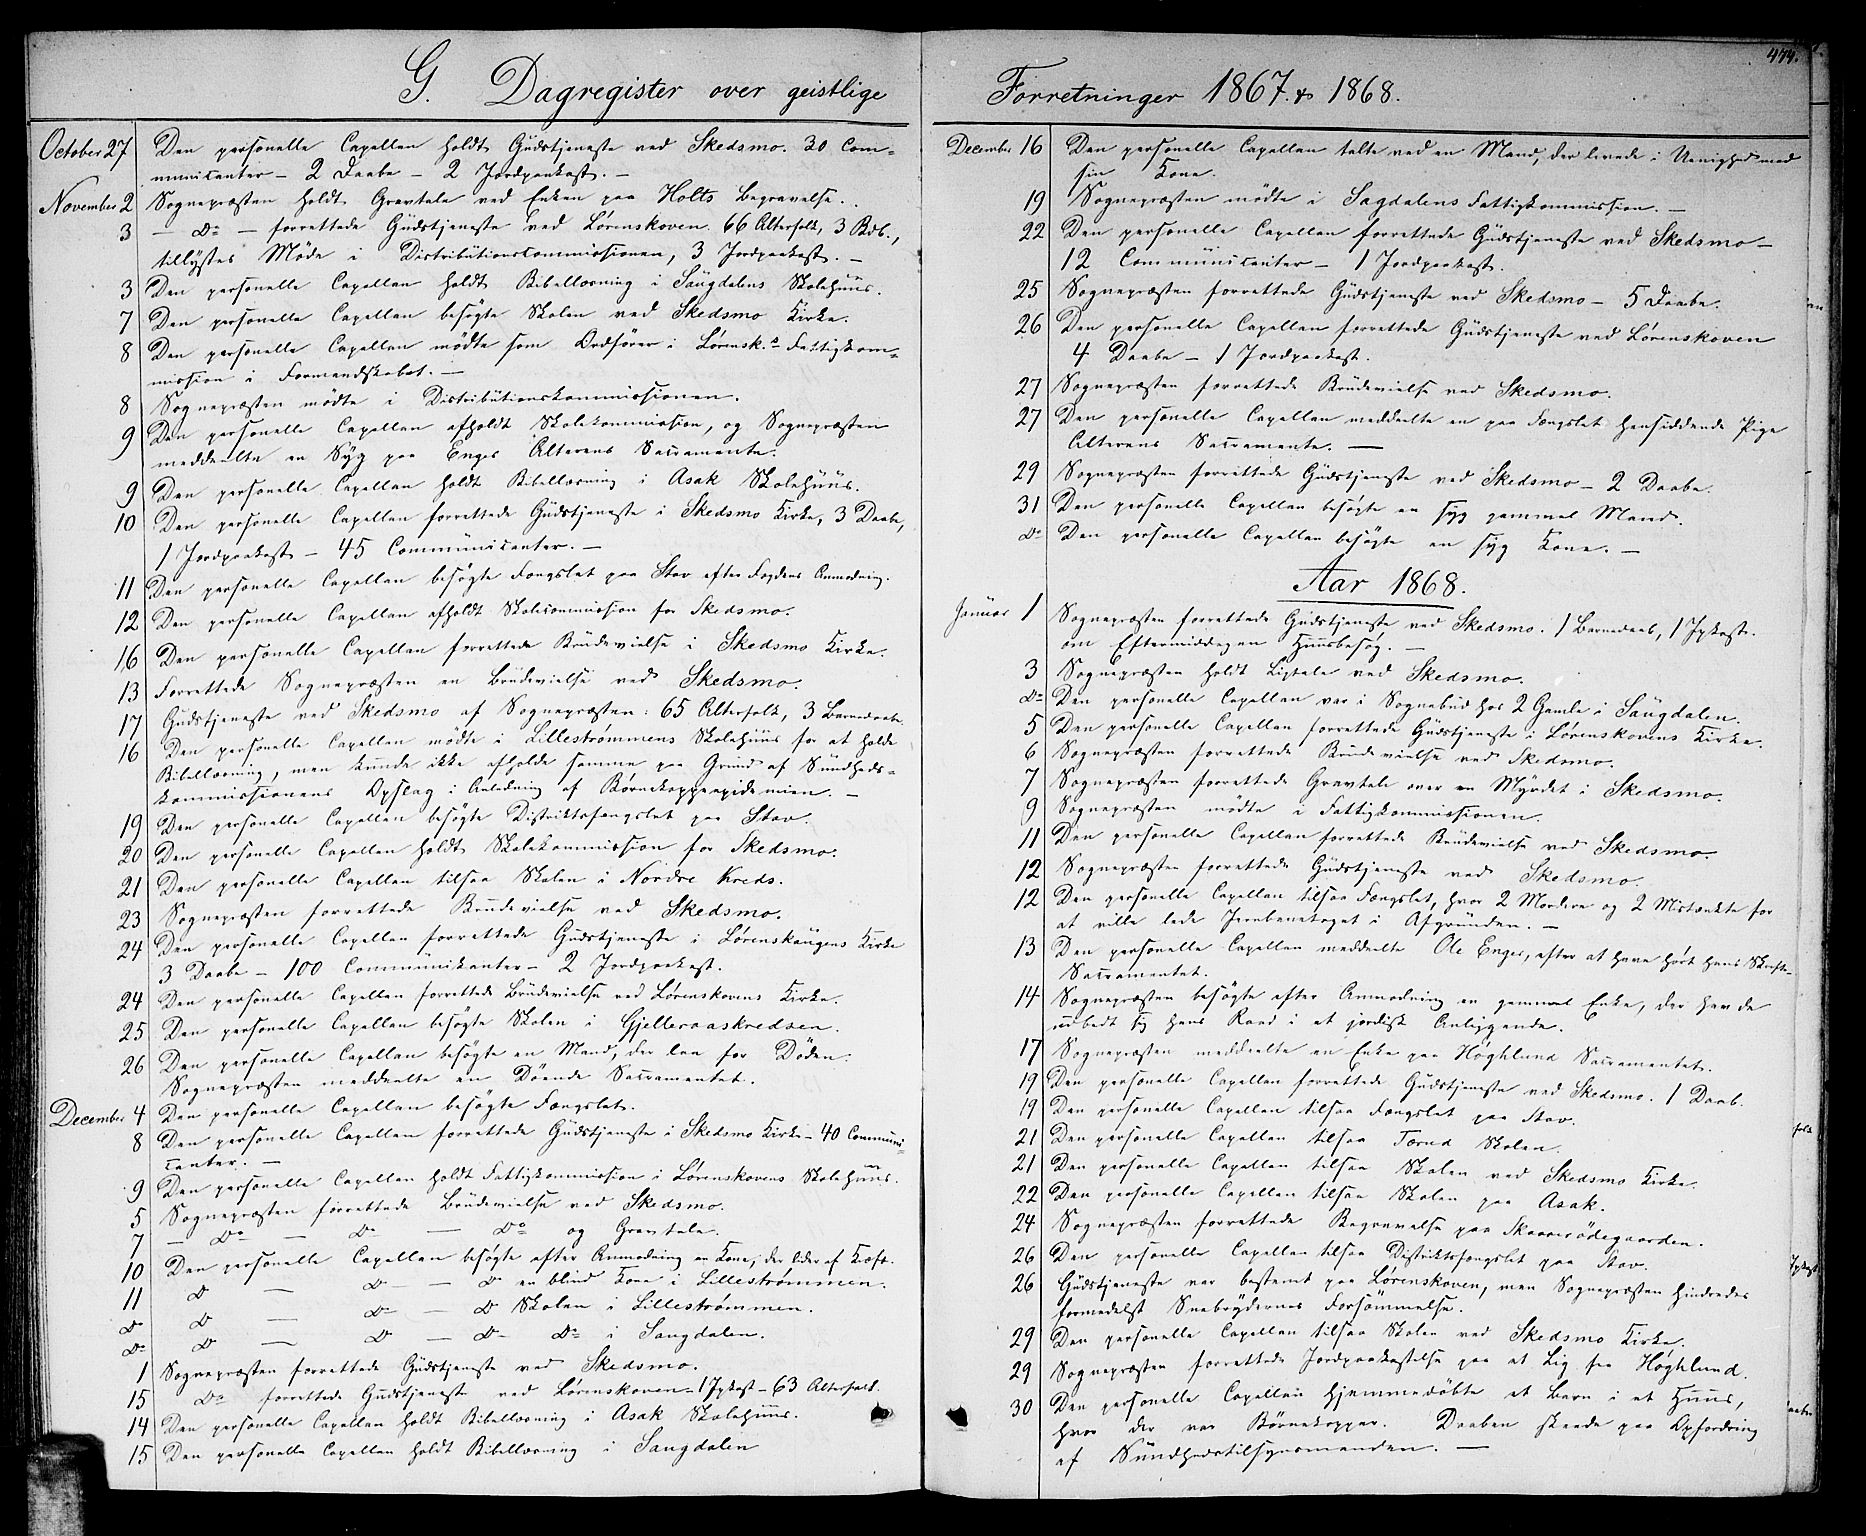 474.
G. Dagregister over geistlige
October 27 Den personelle Capellan holdt Gudstjeneste ved Skedsmo. 30 Com=
municanter – 2 Daabe – 2 Jordpaakast. –
November 2 Sognepræsten holdt Gravtale ved Enken paa Holts Begravelse.
3 – Do – forrettede Gudstjeneste ved Lørenskoven. 66 Altersfolk, 3 Bdb.,
tillystes Møde i Distributionscommissionen, 3 Jordpaakast. –
3 Den personelle Capellan holdt Bibellæsning i Saugdalens Skolehuus.
7 Den personelle Capellan besøgte Skolen ved Skedsmo Kirke.
8 Den personelle Capellan mødte som Ordfører i Lørensk.s Fattigkom=
mission i Formandskabet. –
8 Sognepræsten mødte i Distributionskommissionen.
9 Den personelle Capellan afholdt Skolekommission, og Sognepræsten
meddeelte en Syg paa Enges Alterens Sacramente.
9 Den personelle Capellan holdt Bibellæsning i Asak Skolehuus.
10 Den personelle Capellan forrettede Gudstjeneste i Skedsmo Kirke, 3 Daabe,
1 Jordpaakast – 45 Communicanter. –
11 Den personelle Capellan besøgte Fængslet paa Stav efter Fogdens Anmodning.
12 Den personelle Capellan afholdt Skolecommission for Skedsmo.
16 Den personelle Capellan forrettede Brudevielse i Skedsmo Kirke.
13 Forrettede Sognepræsten en Brudevielse ved Skedsmo.
17 Gudstjeneste ved Skedsmo af Sognepræsten: 65 Altersfolk, 3 Barnedaabe.
16 Den personelle Capellan mødte i Lillestrømmens Skolehuus for at holde
Bibellæsning, men kunde ikke afholde samme paa Grund af Sundheds=
kommissionens Opslag i Anledning af Børnekoppeepidemien. –
19 Den personelle Capellan besøgte Distriktsfængslet paa Stav.
20 Den personelle Capellan holdt Skolekommission for Skedsmo.
21 Den personelle Capellan tilsaa Skolen i Nordre Kreds.
23 Sognepræsten forrettede Brudevielse ved Skedsmo.
24 Den personelle Capellan forrettede Gudstjeneste i Lørenskaugens Kirke
3 Daabe – 100 Communikanter – 2 Jordpaakast.
24 Den personelle Capellan forrettede Brudevielse ved Lørenskovens Kirke.
25 Den personelle Capellan besøgte Skolen i Gjelleraaskredsen.
26 Den personelle Capellan besøgte en Mand, der laa for Døden.
Sognepræsten meddeelte en Døende Sacramentet.
December 4 Den personelle Capellan besøgte Fængslet.
8 Den personelle Capellan forrettede Gudstjeneste i Skedsmo Kirke – 40 Communi=
canter. –
9 Den personelle Capellan holdt Fattigkommission i Lørenskovens Skolehuus.
5 Sognepræsten forrettede Brudevielse ved Skedsmo.
7 – Do – Do – Do og Gravtale.
10 Den personelle Capellan besøgte efter Anmodning en Kone, der lider af Kræft.
11 Do – Do – Do en blind Kone i Lillestrømmen.
Do Do – Do – Do Skolen i Lillestrømmen.
Do Do – Do – Do Do i Saugdalen.
1 Sognepræsten forrettede Gudstjeneste ved Skedsmo.
15 Do forrettede Gudstjeneste ved Lørenskoven – 1 Jpkast – 63 Altersfolk.
14 Den personelle Capellan holdt Bibellæsning i Asak Skolehuus.
15 Den personelle Capellan holdt Bibellæsning i Saugdalen
Forretninger 1867. & 1868.
December 16 Den personelle Capellan talte ved en Mand, der levede i Uenighed med
sin Kone.
19 Sognepræsten mødte i Sagdalens Fattigkommission. –
22 Den personelle Capellan forrettede Gudstjeneste ved Skedsmo –
12 Communicanter – 1 Jordpaakast.
25 Sognepræsten forrettede Gudstjeneste ved Skedsmo – 5 Daabe.
26 Den personelle Capellan forrettede Gudstjeneste ved Lørenskoven
4 Daabe – 1 Jordpaakast.
27 Sognepræsten forrettede Brudevielse ved Skedsmo.
27 Den personelle Capellan meddeelte en paa Fængslet hensiddende Pige
Alterens Sacramente. –
29 Sognepræsten forrettede Gudstjeneste ved Skedsmo – 2 Daabe.
31 Den personelle Capellan besøgte en syg gammel Mand.
Do Den personelle Capellan besøgte en syg Kone. –
Aar 1868.
Januar 1 Sognepræsten forrettede Gudstjeneste ved Skedsmo. 1 Barnedaab, 1 Jpkast.
om Eftermiddagen Huusbesøg. –
3 Sognepræsten holdt Ligtale ved Skedsmo.
Do Den personelle Capellan var i Sognebud hos 2 Gamle i Saugdalen.
5 Den personelle Capellan forrettede Gudstjeneste i Lørenskovens Kirke.
6 Sognepræsten forrettede Brudevielse ved Skedsmo.
7 Sognepræsten forrettede Gravtale over en Myrdet i Skedsmo.
9 Sognepræsten mødte i Fattigkommissionen.
11 Den personelle Capellan forrettede Brudevielse ved Skedsmo.
12 Sognepræsten forrettede Gudstjeneste ved Skedsmo.
12 Den personelle Capellan tilsaa Fængslet, hvor 2 Mordere og 2 Mistænkte for
at ville lede Jernbanetoget i Afgrunden. –
13 Den personelle Capellan meddeelte Ole Enges, efter at have hørt hans Skrifte=
Sacramentet.
14 Sognepræsten besøgte efter Anmodning en gammel Enke, der havde
udbedt sig hans Raad i et jordisk Anliggende.
17 Sognepræsten meddeelte en Enke paa Høghlund Sacramentet.
19 Den personelle Capellan forrettede Gudstjeneste ved Skedsmo. 1 Daab.
19 Den personelle Capellan tilsaa Fængslet paa Stav.
21 Den personelle Capellan tilsaa Tærud Skolen.
21 Den personelle Capellan tilsaa Skolen ved Skedsmo Kirke.
22 Den personelle Capellan tilsaa Skolen paa Asak.
24 Sognepræsten forrettede Begravelse paa Skovverødegaarden.
26 Den personelle Capellan tilsaa Distriktsfængslet paa Stav.
26 Gudstjeneste var bestemt paa Lørenskoven, men Sognepræsten hindredes
formedelst Snebrydernes Forsømmelse.
29 Den personelle Capellan tilsaa Skolen ved Skedsmo Kirke.
29 Sognepræsten forrettede Jordpaakastelse paa et Lig fra Høghlund.
30 Den personelle Capellan hjemmedøbte et Barn i et Huus,
hvor der var Børnekopper. Daaben skeede paa Opfordring
af Sundhedstilsynsmanden. –